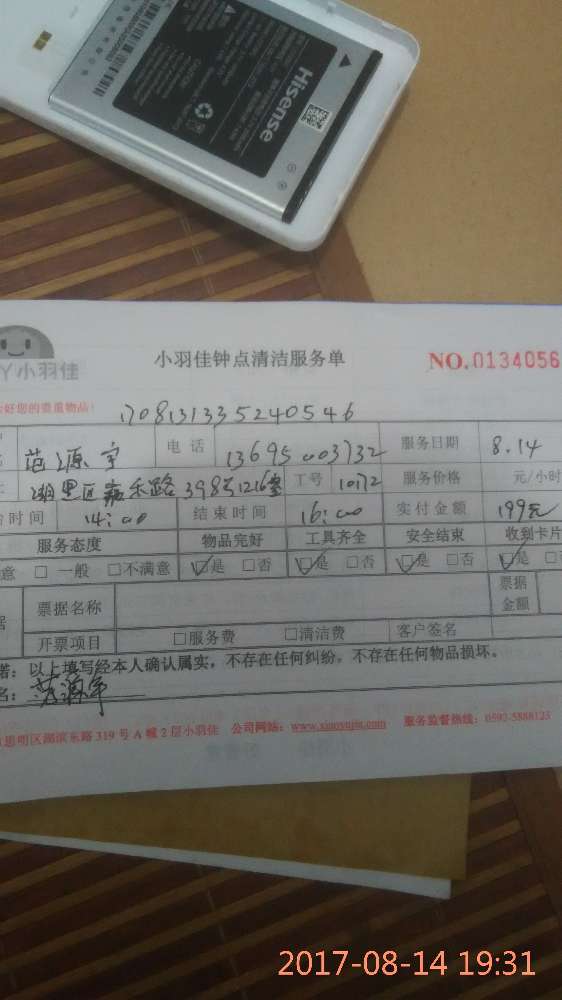 Hisense
小羽佳
小羽佳钟点清洁服务单
NO.0134056
好您的贵重物品!
1708131335240546
范源宇 电话 13695003732 服务日期 8.14
湖里区嘉禾路398号1216室 工号 10172 服务价格 元/小时
时间 14:00 结束时间 16:00 实付金额 199元
服务态度 物品完好 工具齐全 安全结束 收到卡片
意 □ 一般 □不满意 ☑是 □否 ☑是 □否 ☑是 □否 ☑是 □
票据名称 票据金额
开票项目 □服务费 □清洁费 客户签名
诺:以上填写经本人确认属实,不存在任何纠纷,不存在任何物品损坏。
名:
思明区湖滨东路319号A幢2层小羽佳 公司网站:www.xiaoyujia.com 服务监督热线:0592-5888123
2017-08-14 19:31